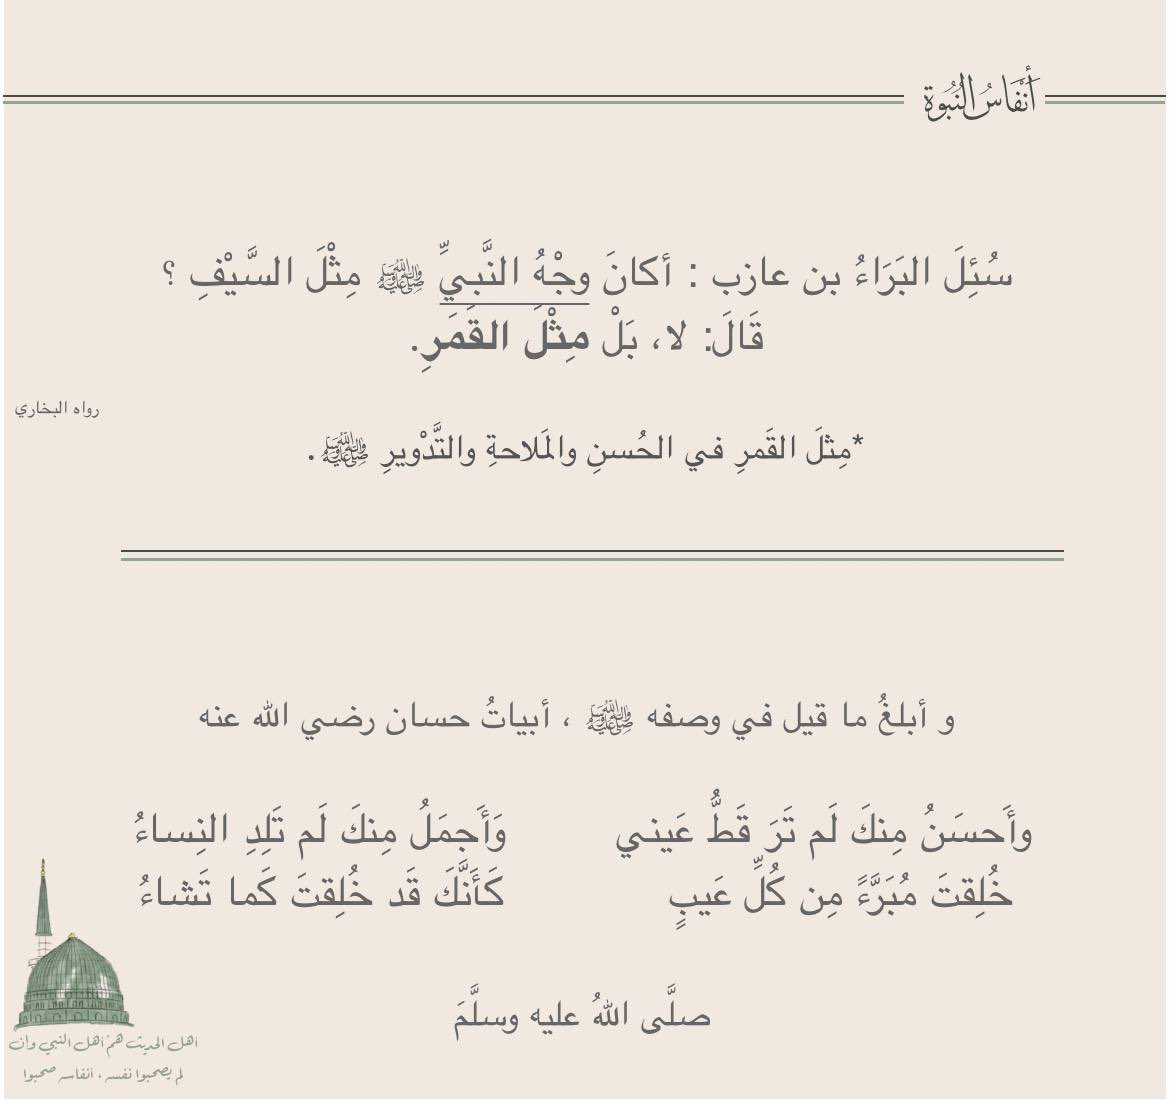 أَنْفَاسُ النُّبُوة
سُئِلَ البَرَاءُ بن عازب : أكانَ وجْهُ النَّبِيِّ ﷺ مِثْلَ السَّيْفِ ؟
قَالَ: لا، بَلْ مِثْلَ القَمَرِ.
رواه البخاري
*مِثلَ القَمرِ في الحُسنِ والمَلاحةِ والتَّدْويرِ ﷺ.
و أبلغُ ما قيل في وصفه ﷺ ، أبياتُ حسان رضي الله عنه
وأَحسَنُ مِنكَ لَم تَرَ قَطُّ عَيني وَأَجمَلُ مِنكَ لَم تَلِدِ النِساءُ
خُلِقتَ مُبَرَّءً مِن كُلِّ عَيبٍ كَأَنَّكَ قَد خُلِقتَ كَما تَشاءُ
صلَّى اللهُ عليه وسلَّمَ
أهل الحديث همُ أهل النبي وإن
لم يصحبوا نفسه ، أنفاسه صحبوا